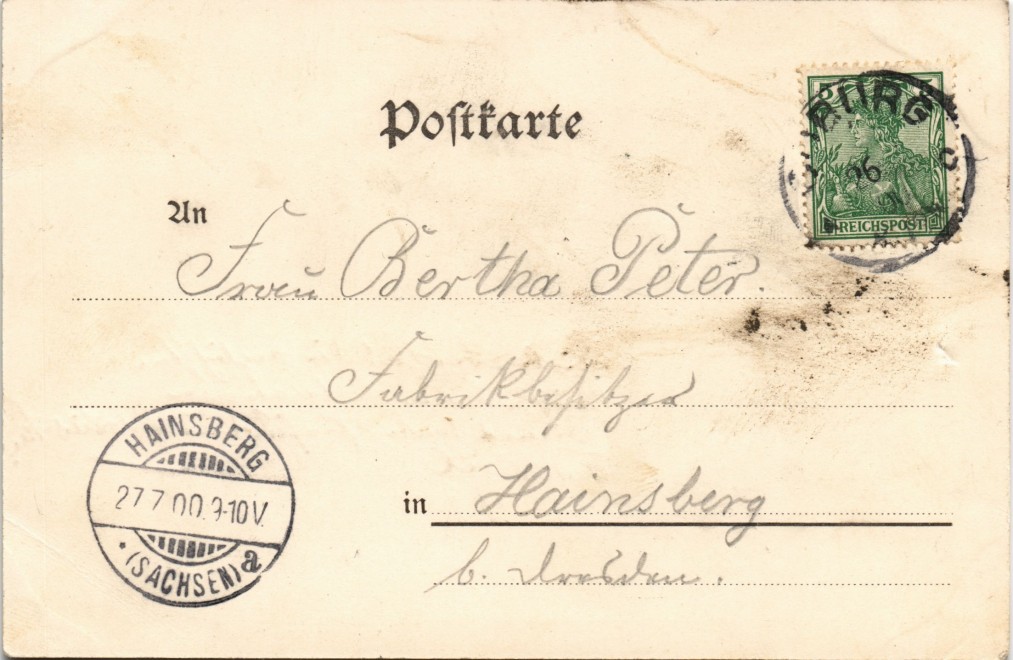 Postkarte
5
REICHSPOST
26
An
Frau Bertha Peter.
Fabrikbesitzer
in Hainsberg
b. Dresden.
HAINSBERG
27.7.00. 9-10V.
* (SACHSEN) a